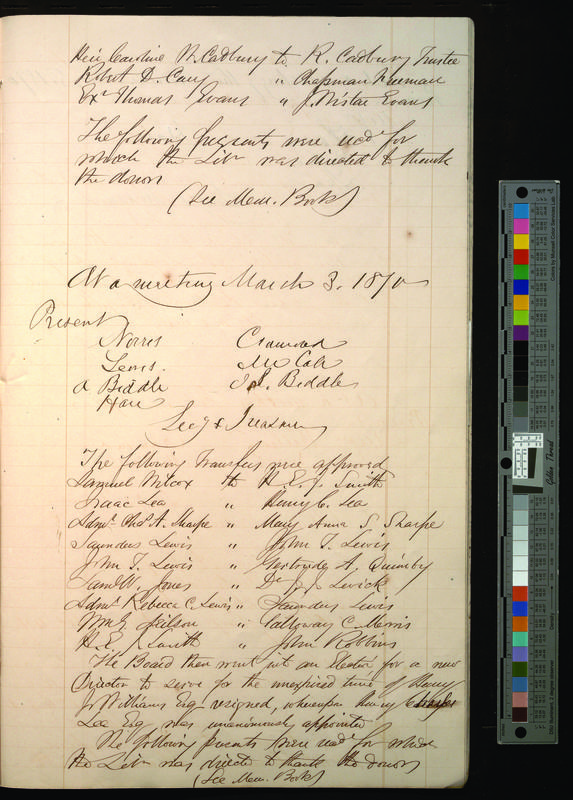 Heir Caroline W. Cadbury to R. Cadbury Trustee
Robert D. Cary " Chapman Freeman
Exr Thomas Evans " J. Wistar Evans
The following presents were recd for
which the Libn was directed to thank
the donors
(See Mem. Book)
At a meeting March 3. 1870
Present
Norris Crawford
Lewis. McCall
A Biddle J. S. Biddle
Hare
Secy & Treasurer
The following Transfers were approved
Samuel Wilcox to H. E. J. Smith
Isaac Lea " Henry C. Lea
Admr Chas. A. Sharpe " Mary Anna S. Sharpe
Saunders Lewis " John T. Lewis
John T. Lewis " Gertrude A. Quimby
Saml W. Jones " Dr J. J. Levick
Admr Rebecca C. Lewis " Saunders Lewis
Wm G Neilson " Galloway C. Morris
H. E. J Smith " John Robbins
The Board then went into an Election for a new
Director to serve for the unexpired time of Henry
J. Williams Esq resigned, whereupon Henry C
Lea Esq was unanimously appointed
The following presents were recd for which
the Libn was directed to thank the donors
(See Mem. Book)
Golden Thread